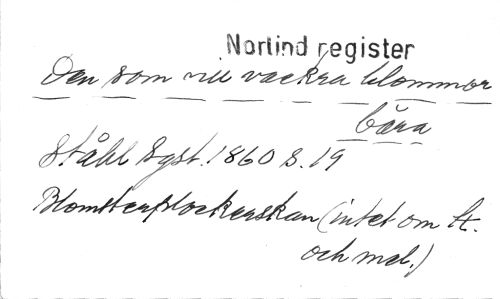 Norlind register
Den som vill vackra blommor
bära
Ståhl Sgst. 1860 S. 19
Blomsterplockerskan (intet om tt.
och mel.)